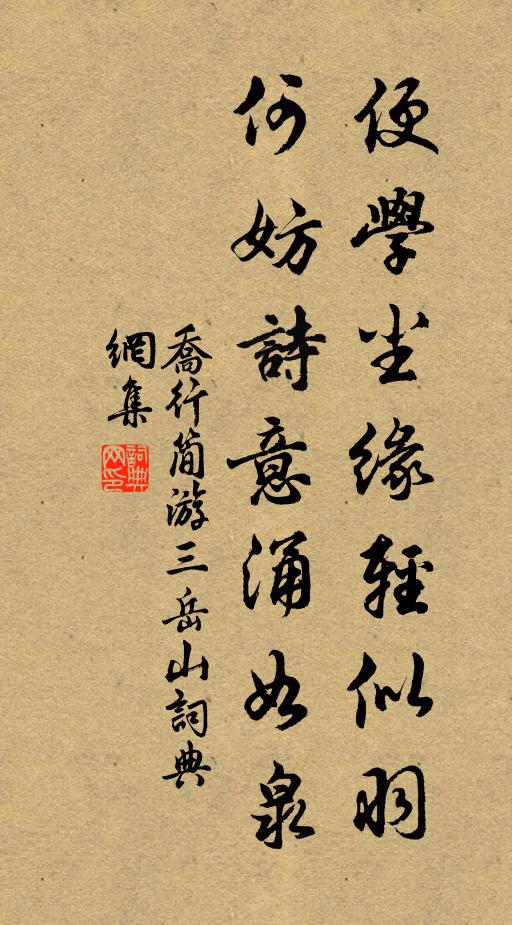 便學尘緣輕似羽
何妨詩意涌如泉
喬行简游三岳山詞典
網集
詞典
网印